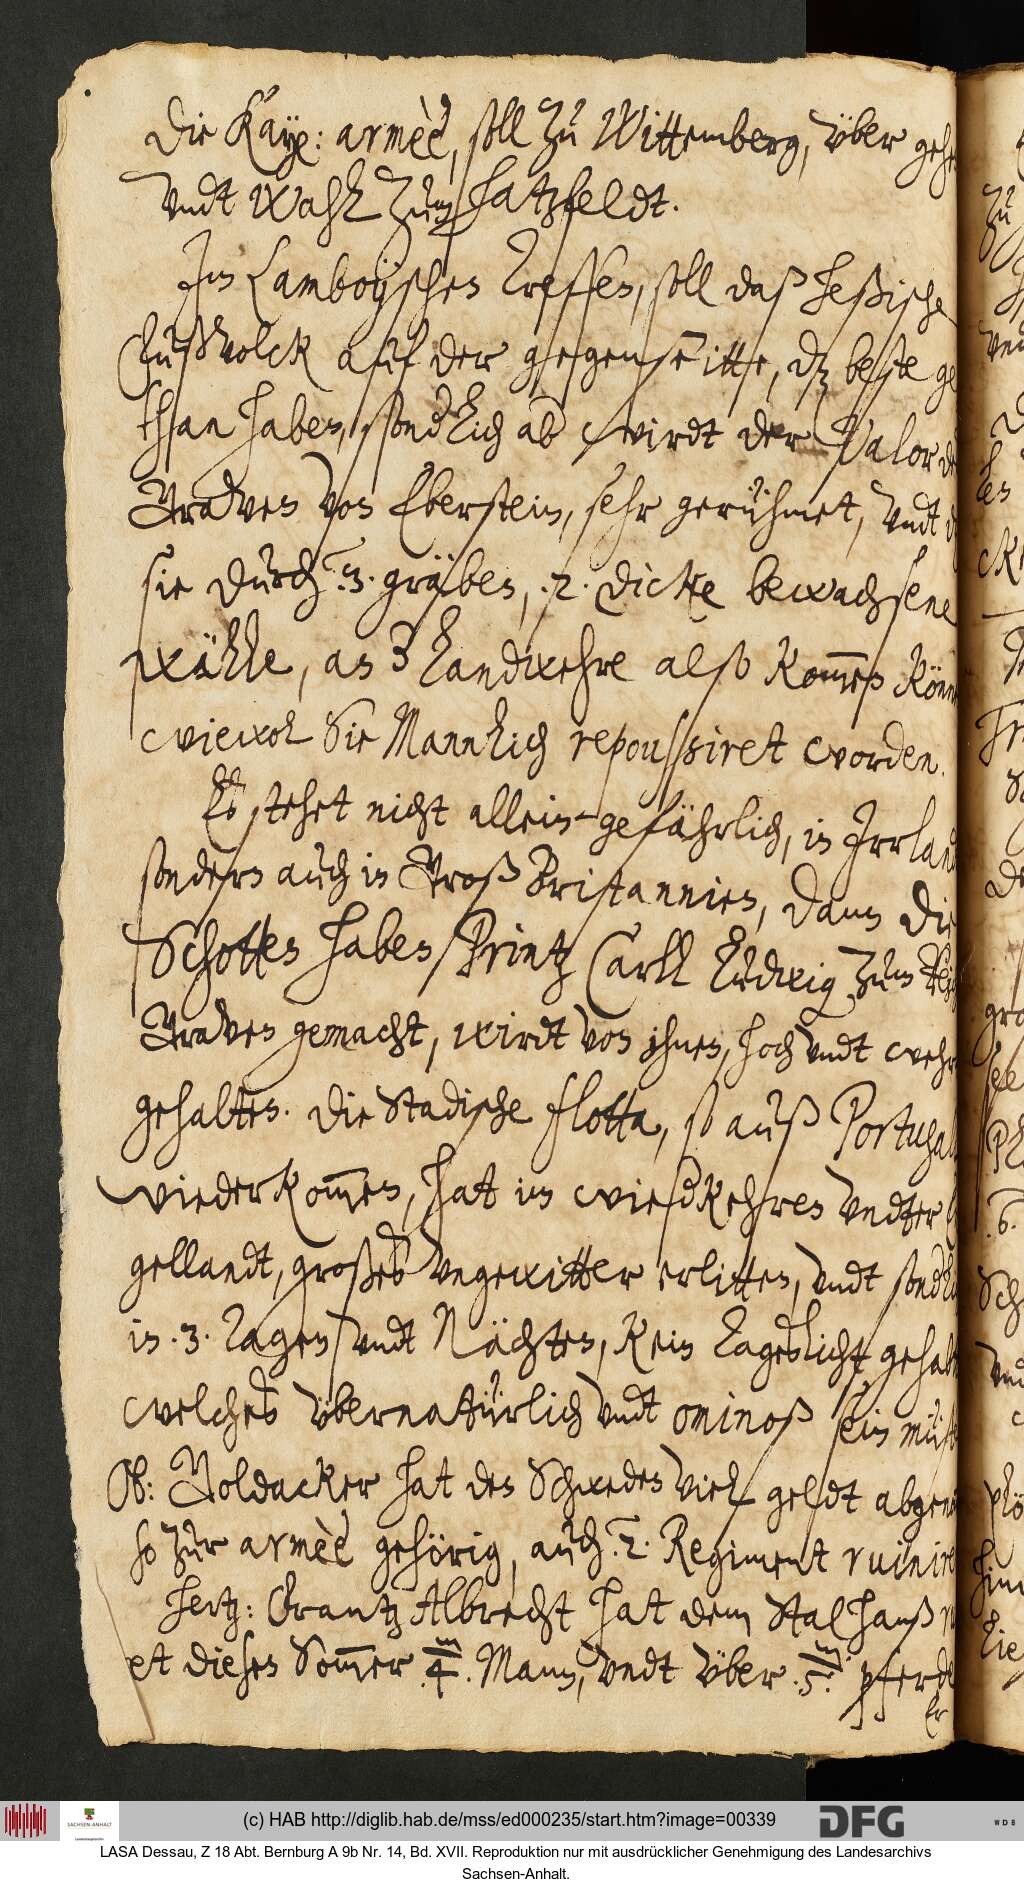 Die Kaÿe: armèè, soll zu Wittemberg, über gehe
vndt Wahl zum Hatzfeldt.
Im Lamboÿschen Treffen, soll daß Heßische
Fußvolck auf der gegenseitte, dz beste ge
than haben, sond̶lich ab wirdt der Valor de
Graven von Eberstein, sehr gerühmet, vndt d
sie durch .3. gräben, .2. dicke bewachsene
wälle, an 3 Landwehre also kom̄en könn
wiewol Sie Mannlich repoussiret worden.
Es stehet nicht allein gefährlich, in Irrlan
sondern auch in Groß Britannien, dann die
Schotten haben Printz Carll Ludwig zum
Graven gemacht, wirdt von ihnen, hoch vndt wehr
gehalten. Die Stadische flotta, so auß Portugal
wiederkom̄en, hat im wied̶kehren vndter
gellandt, großes vngewitter erlitten, vndt sond̶l
in .3. Tagen vndt Nächten, kein tageslicht gehalt
welches übernatürlich vndt ominoß sein müß
Ob: Goldacker hat den Schweden viel geldt abgen
so zur armèè gehörig, auch .2. Regiment ruinire
Hertz: Frantz Albrecht hat dem Stalhanß ru
et diesen Som̄er .4m. Mann, vndt über .5m. pferde
Er
(c) HAB http://diglib.hab.de/mss/ed000235/start.htm?image=00339
SACHSEN-ANHALT
DFG
WDB
LASA Dessau, Z 18 Abt. Bernburg A 9b Nr. 14, Bd. XVII. Reproduktion nur mit ausdrücklicher Genehmigung des Landesarchivs
Sachsen-Anhalt.